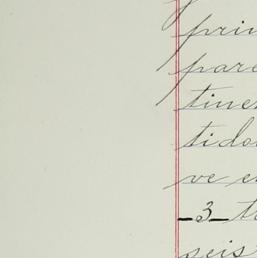 prin
pare
tine
tido
ve e
-3-t
seis